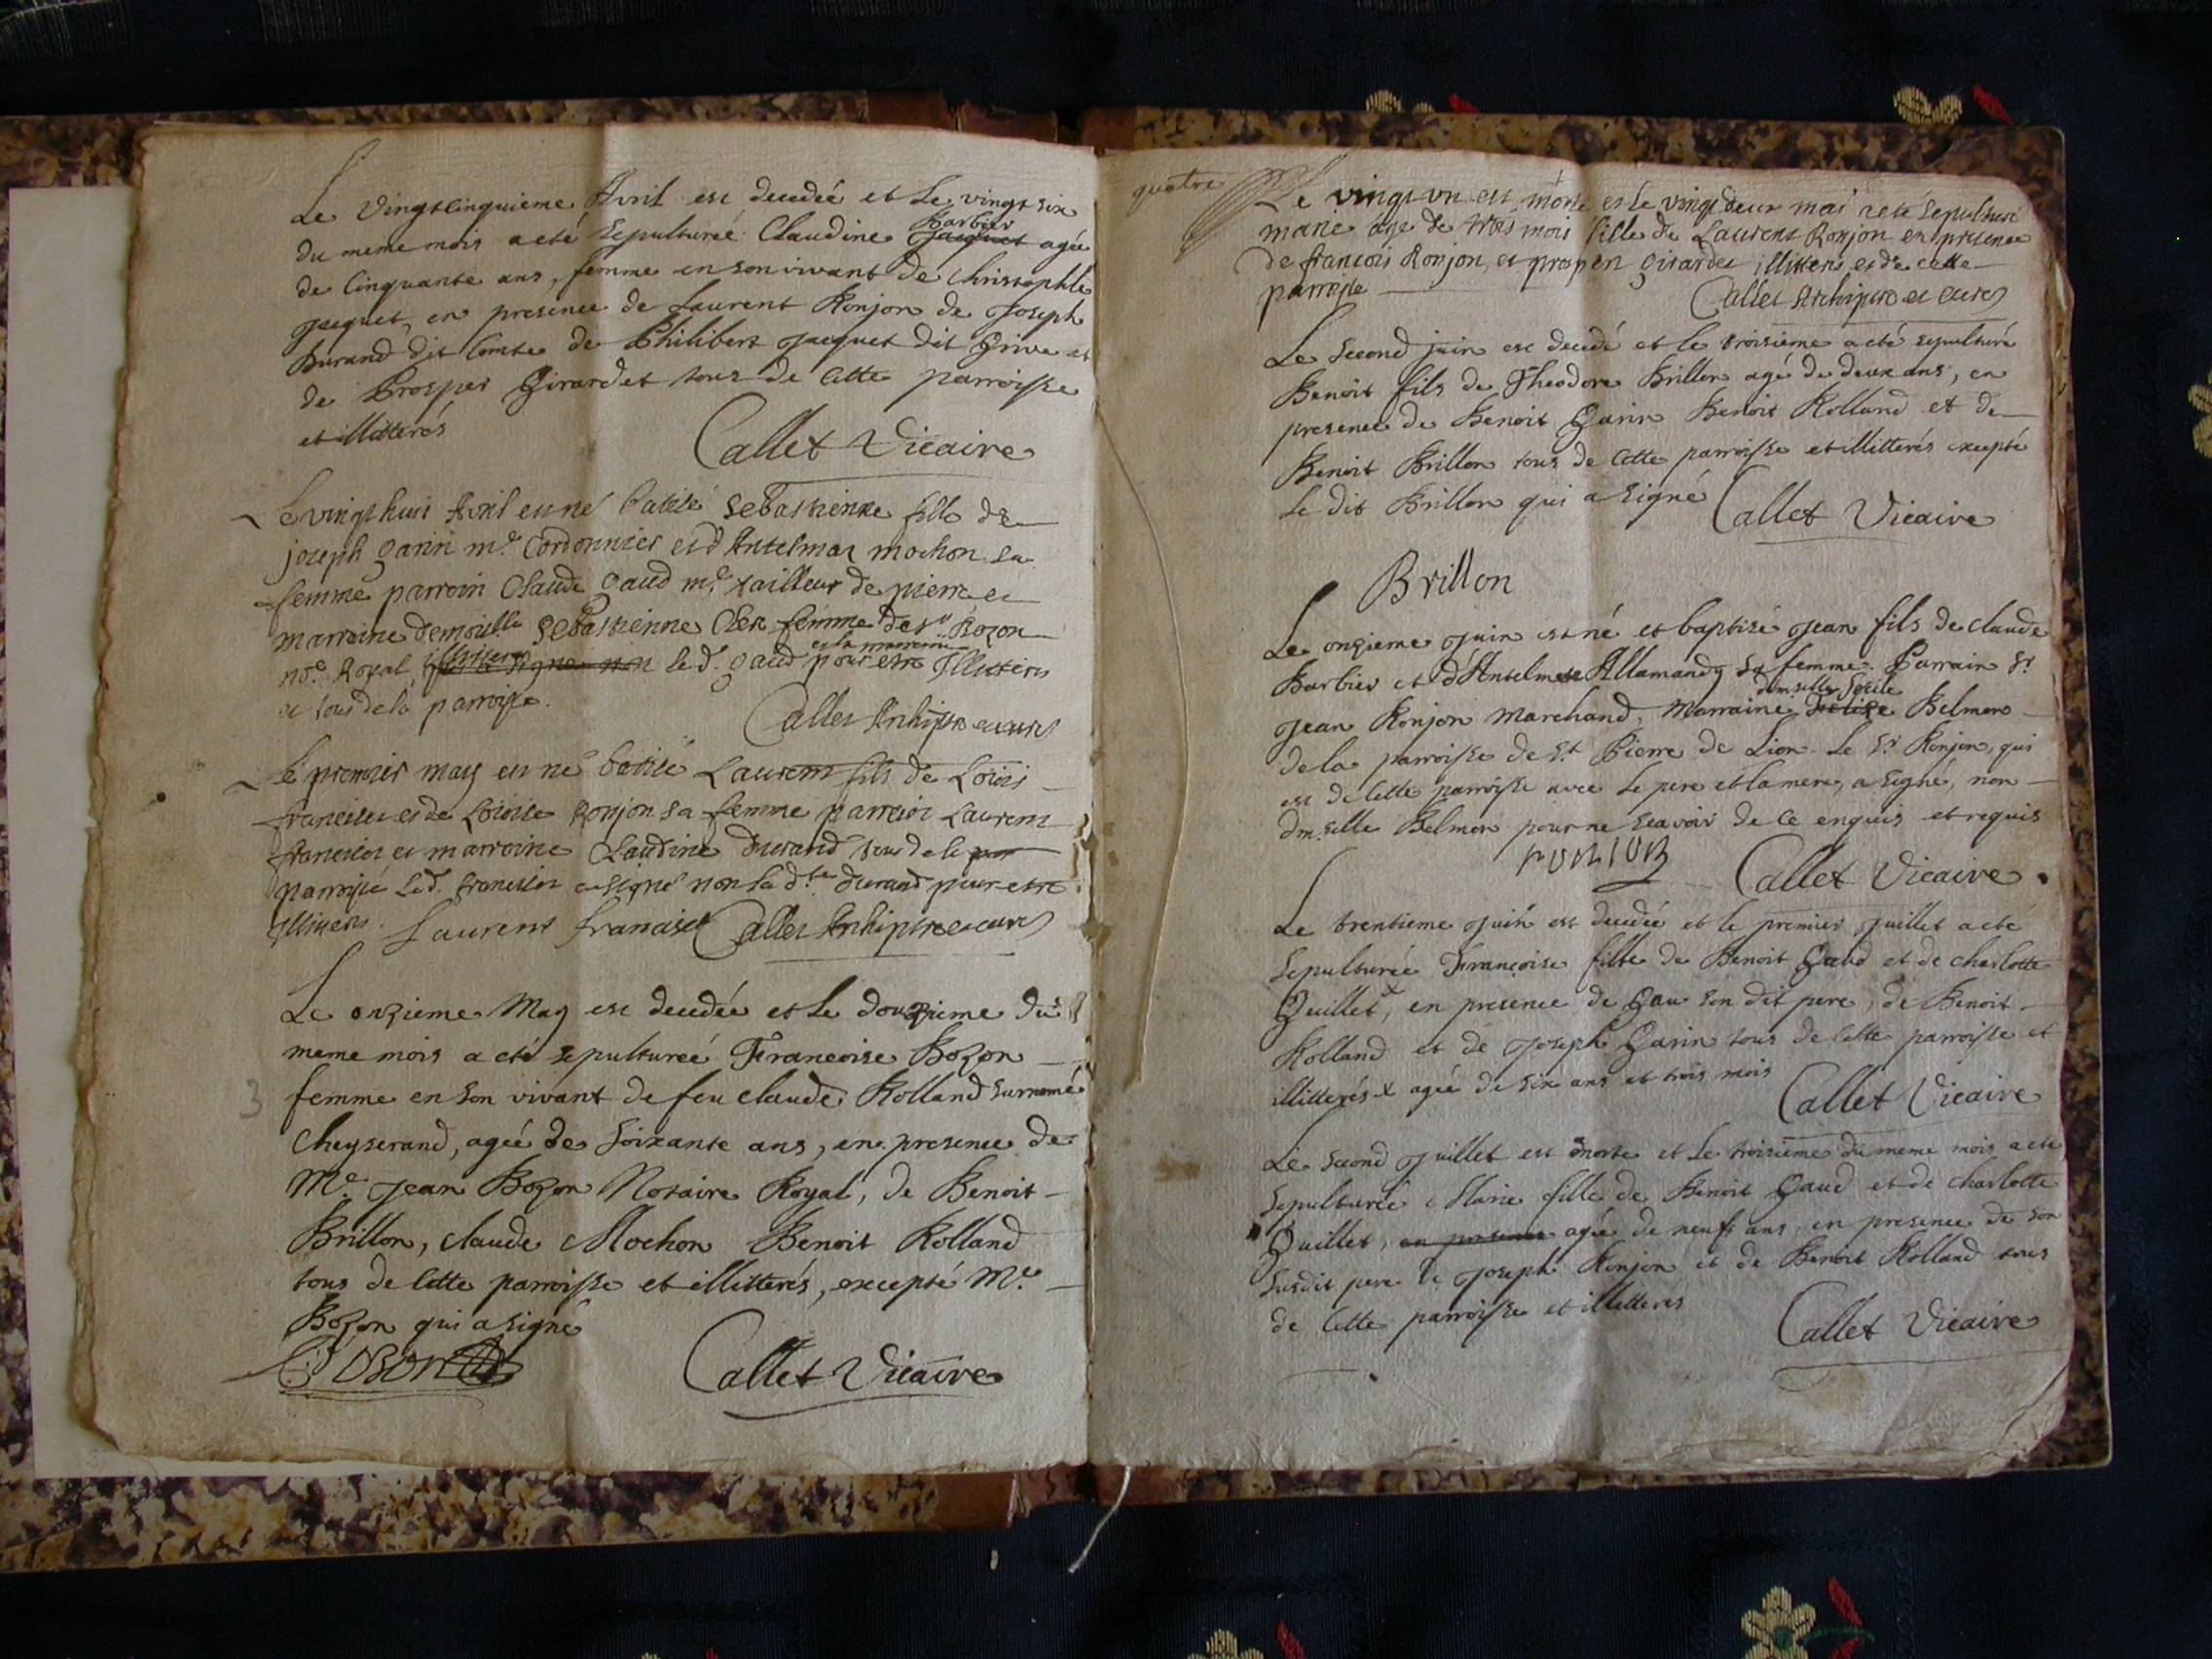 Le vingtcinquieme Avril est decedeé et Le vingt six
du meme mois a eté sepultureé Claudine Jacquet Barbier ageé
de cinquante ans, femme en son vivant de Christophle
Jacquet, en presence de Laurent Ronjon de Joseph
Durand dit Comte de Philibert Jacquet dit Grive et
de Prosper Girardet tous de cette parroisse
et illitterés
Callet Vicaire
Le vingt huit Avril est né batisé sebastienne fille de
joseph garin me. Cordonnier et d'Antelmaz mochon sa
femme parroin Claude gaud me. tailleur de pierre et
marroine demoiselle sebastienne femme de sr Bozon
no.e Royal, non le d. gaud et la marraine pour estre Illitteres
et tous de la parroisse.
Callet Archiptre et curé
le premier may est né batisé Laurent fils de Loüis
franciset et de Loüise Ronjon sa femme parroin Laurent
franciset et marroine Claudine durand tous de le par
parroisse le d. franciset a signé non la d.te durand pour estre
Illiteres. Laurent franciset Callet Archiptre et curé
Le onzieme May est decedeé et Le douzieme du
meme mois a eté sepultureé Francoise Bozon
femme en son vivant de feu claude Rolland surnomé
Cheyserand, ageé de soixante ans, en presence de
Me. Jean Bozon Notaire Royal, de Benoit
Brillon, claude Mochon Benoit Rolland
tous de cette parroisse et illitterés, excepté Me.
Bozon qui a signé
Bozon
Callet Vicaire
3
quatre
Le vingt un est morte et le vingt deux mai a eté sepulturé
marie age de trois mois fille de Laurent Ronjon en presence
de francois Ronjon, et prosper girardet illitteres et de cette
parroisse
Callet Archiptre et curé
Le second juin est decedé et le troisieme a eté sepulturé
Benoit fils de Theodore Brillon agé de deux ans, en
presence de Benoit Garin Benoit Rolland et de
Benoit Brillon tous de cette parroisse et illitterés excepté
le dit Brillon qui a signé Callet Vicaire
Brillon
Le onzieme Juin est né et baptisé Jean fils de claude
Barbier et d'Antelme Allamand sa femme. Parrain Sr
Jean Ronjon marchand, Marraine demselle Belmon
de la parroisse de St. Pierre de Lion. Le Sr. Ronjon, qui
est de cette parroisse avec le pere et la mere, a signé, non
dm.selle Belmon pour ne sçavoir de ce enquis et requis
ronion Callet Vicaire
Le trentieme Juin est decedeé et le premier Juillet a eté
sepultureé Françoise fille de Benoit Gaud et de charlotte
Quillet x, en presence de Gau son dit pere, de Benoit
Rolland et de Joseph Garin tous de cette parroisse et
illitterés x ageé de six ans et trois mois
Callet Vicaire
Le second Juillet est morte et Le troisieme du meme mois a eté
sepultureé Marie fille de Benoit Gaud et de charlotte
Quillet, en presence ageé de neufs ans, en presence de son
susdit pere de Joseph Ronjon et de Benoit Rolland tous
de cette parroisse et illitterés
Callet Vicaire